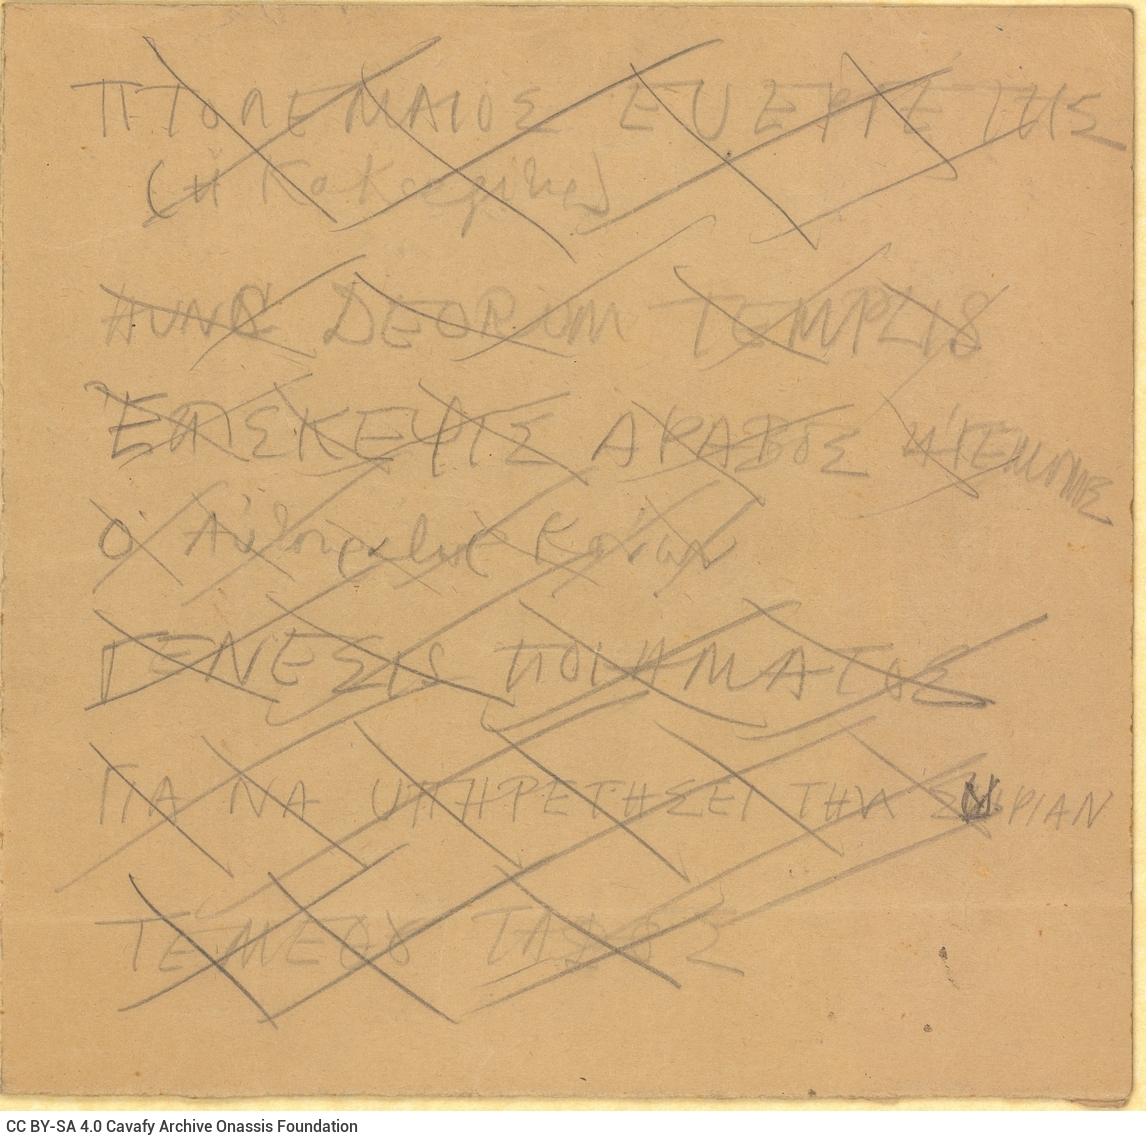 ΠΤΟΛΕΜΑΙΟΣ ΕΥΕΡΓΕΤΗΣ
(ἢ Κακεργέτης)
HUNC DEORUM TEMPLIS
ἘΠΙΣΚΕΨΙΣ ΑΡΑΒΟΣ ΗΓΕΜΟΝΟΣ
Ο
ΓΕΝΕΣΙΣ ΠΟΙΗΜΑΤΟΣ
ΓΙΑ ΝΑ ΥΠΗΡΕΤΗΣΕΙ ΤΗΝ ΣΥΡΙΑΝ
ΤΕΜΕΘΟΥ ΤΑΦΟΣ
CC BY-SA 4.0 Cavafy Archive Onassis Foundation